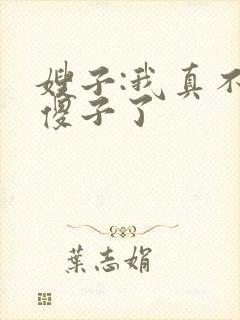 嫂子:我真不
傻子了
葉志娟